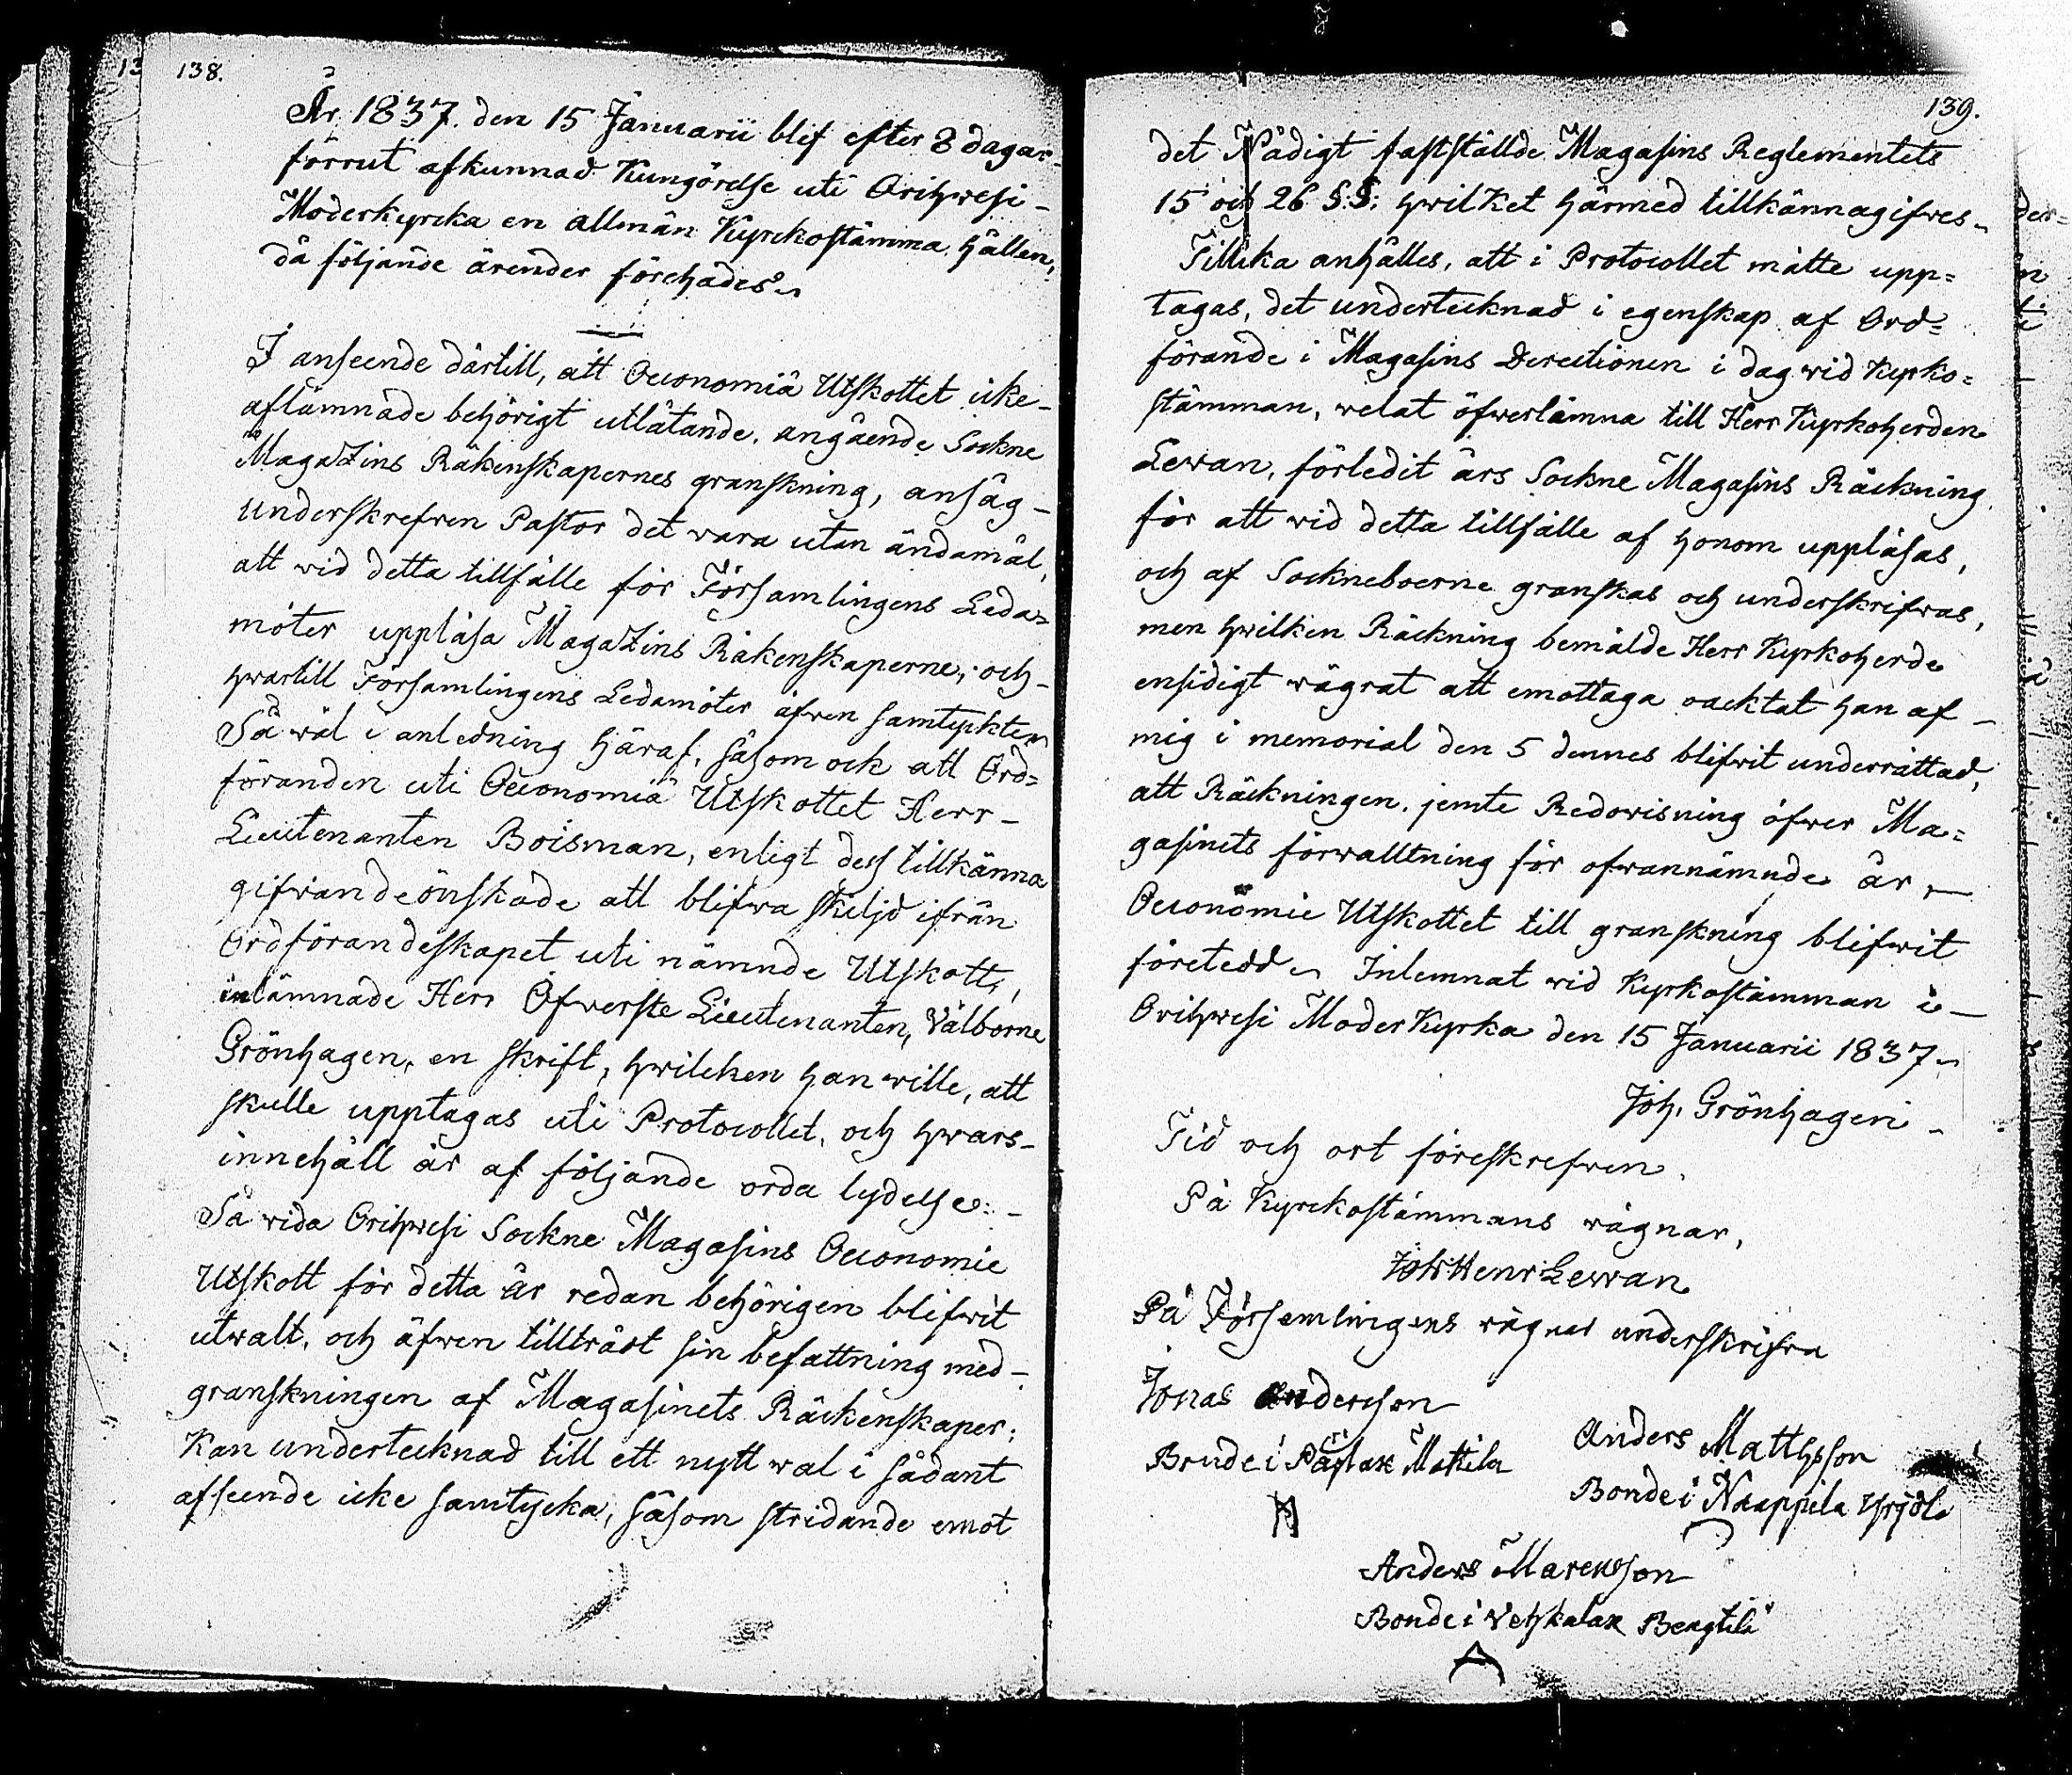 138.
År 1837. den 15 Januarii blef efter 8 dagar
förrut afkunnad Kungörelse uti Orihwesi
Moderkyrcka en allmän Kyrckostämma hållen,
då följande ärender förehades
I anseende därtill, att Oeconomiä Utskottet icke
aflämnade behörigt utlåtande, angående Sockne
Magazins Räkenskapernes granskning, ansåg
underskrefven Pastor det vara utan ändamål,
att wid detta tillfälle för Församlingens Leda=
möter uppläsa Magazins Räkenskaperne; och
hwartill Församlingens Ledamöter äfven samtyckte
Så wäl i anledning häraf, såsom ock att Ord=
föranden uti Oeconomiä Utskottet Herr
Lieutenanten Boisman, enligt dess tillkänna
gifvande önskade att blifwa skiljd ifrån
Ordförandeskapet uti nämnde Utskott,
inlämnade Herr Öfwerste Lieutenanten, Välborne
Grönhagen, en skrift, hwilcken han wille, att
skulle upptagas uti Protocollet, och hwars
innehåll är af följande orda lydelse:
Så vida Orihwesi Sockne Magasins Oeconomie
Utskott för detta år redan behörigen blifwit
utwalt, och äfwen tillträdt sin befattning med
granskningen af Magasinets Räckenskaper;
Kan undertecknad till ett nytt wal i sådant
afseende icke samtycka, såsom stridande emot
139.
det Nådigt fastställde Magasins Reglementets
15 och 26 §.§: hwilket härmed tillkännagifwes
Tillika anhålles, att i Protocollet måtte upp=
tagas, det undertecknad i egenskap af Ord=
förande i Magasins Directionen i dag wid Kyrko=
stämman, welat öfwerlämna till Herr Kyrkoherden
Lewan, förledit års Sockne Magasins Räckning
för att wid detta tillfälle af honom uppläsas,
och af Sockneboerne granskas och underskrifwas,
men hwilken Räckning bemälde Herr Kyrkoherde
ensidigt wägrat att emottaga oacktat han af
mig i memorial den 5 dennes blifwit underrättad,
att Räckningen jemte Redovisning öfwer Ma=
gasinets förwalltning för ofwannämnde år
Oeconomie Utskottet till granskning blifwit
företedd Inlemnat wid Kyrkostämman i
Orihwesi Moder Kyrka den 15 Januarii 1837
Joh. Grönhagen
Tid och ort föreskrefwen.
På Kyrckostämmans wägnar,
Joh: Henr Lewan
På Församlingens wägnar underskrifva
Jonas Andersson
Bonde i Mattila
Anders Mattsson
Bonde i Naappila Yrjölä
Anders Marcusson
Bonde i Vehkalax Bengtilä